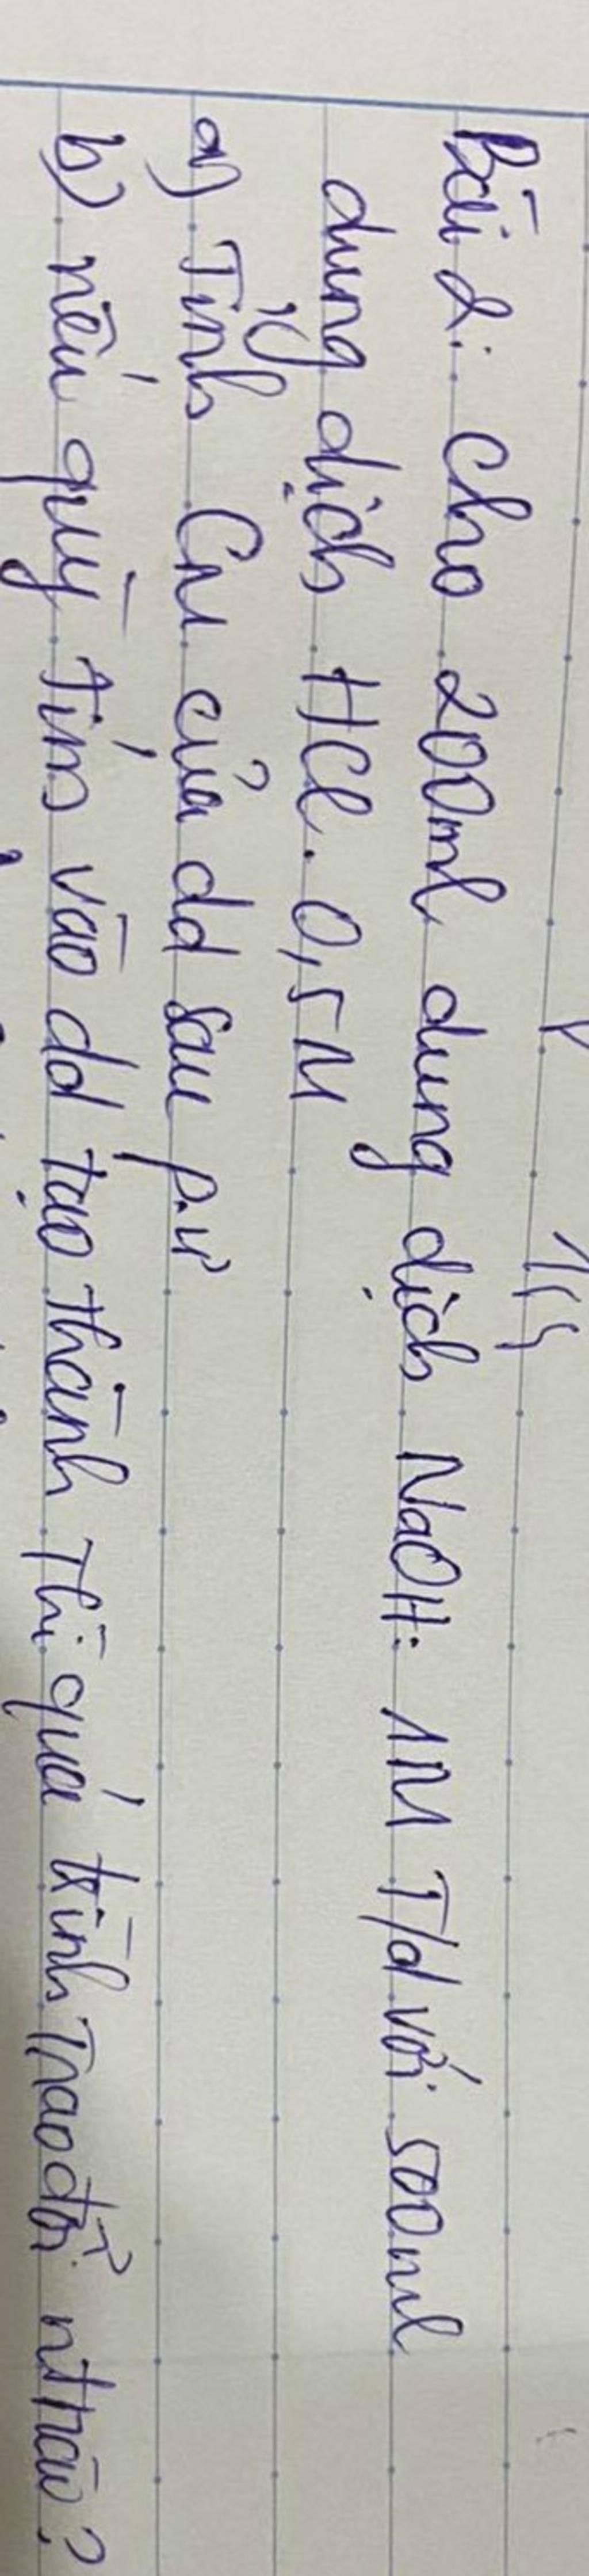 Bài 2: Cho 200ml dung dịch NaOH: 1M T/d với 500ml
dung dịch HCl. 0,5M
a) Tính CM của dd sau p.ư
b) nếu quỳ tím vào dd tạo thành Thì quá trình Trao đổi nthào?